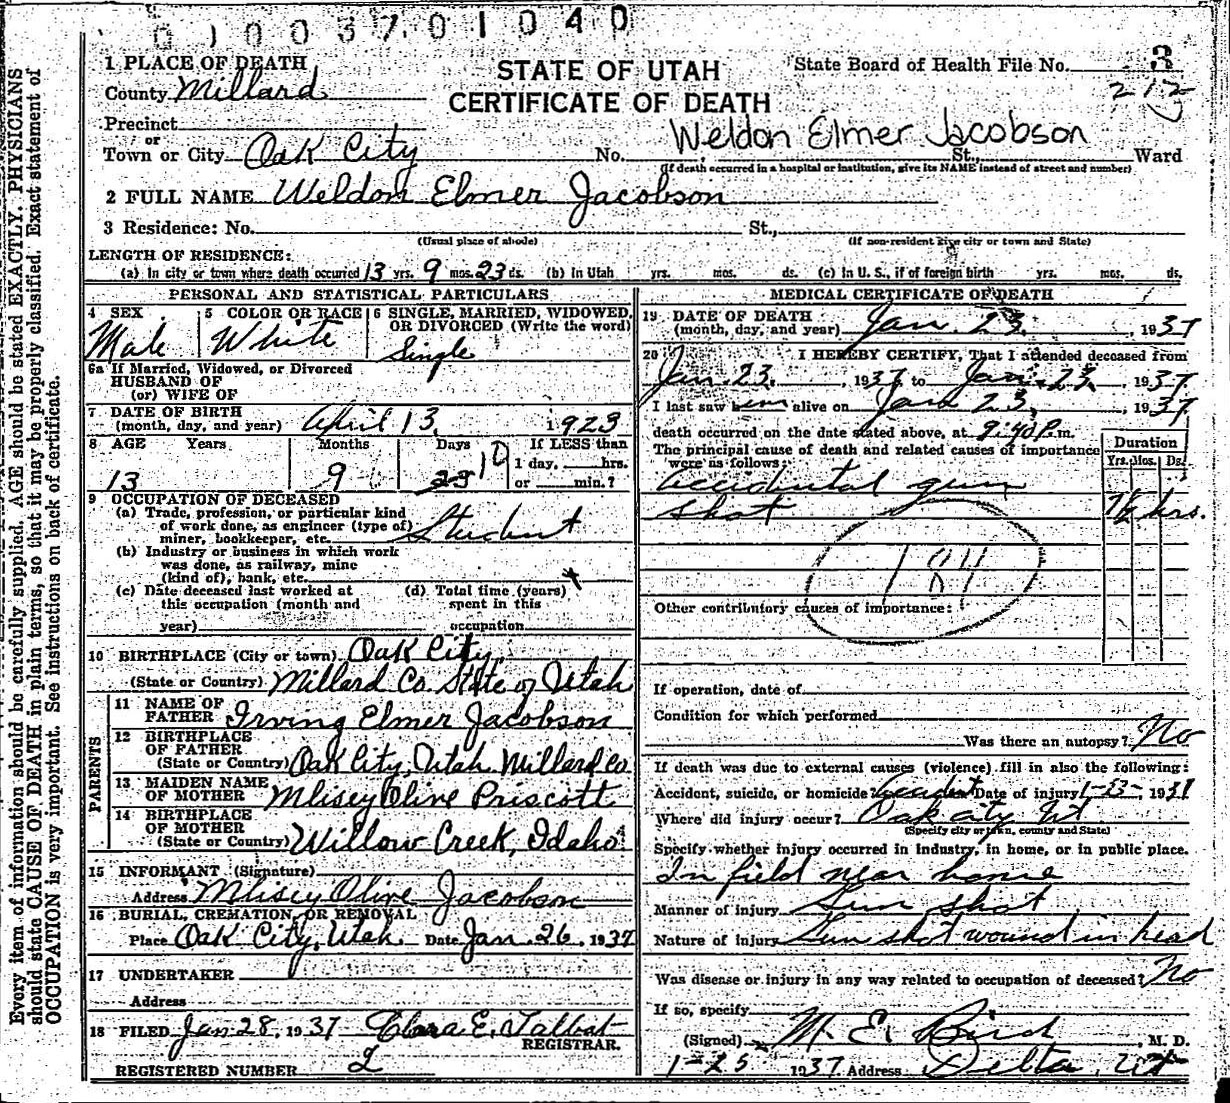 0 1 0 0 3 7 0 1 0 4 0
1 PLACE OF DEATH
County Millard
STATE OF UTAH
CERTIFICATE OF DEATH
State Board of Health File No. 3
212
Precinct
or
Town or City Oak City No. St., Ward
Weldon Elmer Jacobson
(If death occurred in a hospital or institution, give its NAME instead of street and number)
2 FULL NAME Weldon Elmer Jacobson
3 Residence: No. St.,
(Usual place of abode) (If non-resident give city or town and State)
LENGTH OF RESIDENCE:
(a) In city or town where death occurred 13 yrs. 9 mos. 23 ds. (b) In Utah yrs. mos. ds. (c) In U. S., if of foreign birth yrs. mos. ds.
PERSONAL AND STATISTICAL PARTICULARS
4 SEX
Male
5 COLOR OR RACE
White
6 SINGLE, MARRIED, WIDOWED,
OR DIVORCED (Write the word)
Single
6a If Married, Widowed, or Divorced
HUSBAND OF
(or) WIFE OF
7 DATE OF BIRTH
(month, day, and year) April 13, 1923
8 AGE Years Months Days If LESS than
1 day, hrs.
or min.?
13 9 23 10
9 OCCUPATION OF DECEASED
(a) Trade, profession, or particular kind
of work done, as engineer (type of)
miner, bookkeeper, etc. Student
(b) Industry or business in which work
was done, as railway, mine
(kind of), bank, etc.
(c) Date deceased last worked at
this occupation (month and
year)
(d) Total time (years)
spent in this
occupation
10 BIRTHPLACE (City or town) Oak City,
(State or Country) Millard Co. State of Utah
PARENTS
11 NAME OF
FATHER Irving Elmer Jacobson
12 BIRTHPLACE
OF FATHER
(State or Country) Oak City, Utah Millard Co
13 MAIDEN NAME
OF MOTHER Mlisey Olive Priscott
14 BIRTHPLACE
OF MOTHER
(State or Country) Willow Creek, Idaho
15 INFORMANT (Signature)
Address Mlisey Olive Jacobson
16 BURIAL, CREMATION, OR REMOVAL
Place Oak City, Utah Date Jan. 26 1937
17 UNDERTAKER
Address
18 FILED Jan 28, 1937 Clara E. Talbot
REGISTRAR.
REGISTERED NUMBER 2
MEDICAL CERTIFICATE OF DEATH
19 DATE OF DEATH
(month, day, and year) Jan. 23, 1937
20 I HEREBY CERTIFY, That I attended deceased from
Jan. 23, 1937, to Jan. 23, 1937
I last saw him alive on Jan 23, 1937
death occurred on the date stated above, at 9:40 P. m.
The principal cause of death and related causes of importance
were as follows:
Duration
Yrs. Mos. Ds.
Accidental gun
shot 7½ hrs.
181
Other contributory causes of importance:
If operation, date of
Condition for which performed
Was there an autopsy? No
If death was due to external causes (violence) fill in also the following:
Accident, suicide, or homicide Accident Date of injury 1-23-1937
Where did injury occur? Oak City Ut
(Specify city or town, county and State)
Specify whether injury occurred in industry, in home, or in public place.
In field near home
Manner of injury Gun shot
Nature of injury Gun shot wound in head
Was disease or injury in any way related to occupation of deceased? No
If so, specify
(Signed) M. E. Bird, M. D.
1-25 1937. Address Delta, Ut
Every item of information should be carefully supplied. AGE should be stated EXACTLY. PHYSICIANS
should state CAUSE OF DEATH in plain terms, so that it may be properly classified. Exact statement of
OCCUPATION is very important. See instructions on back of certificate.